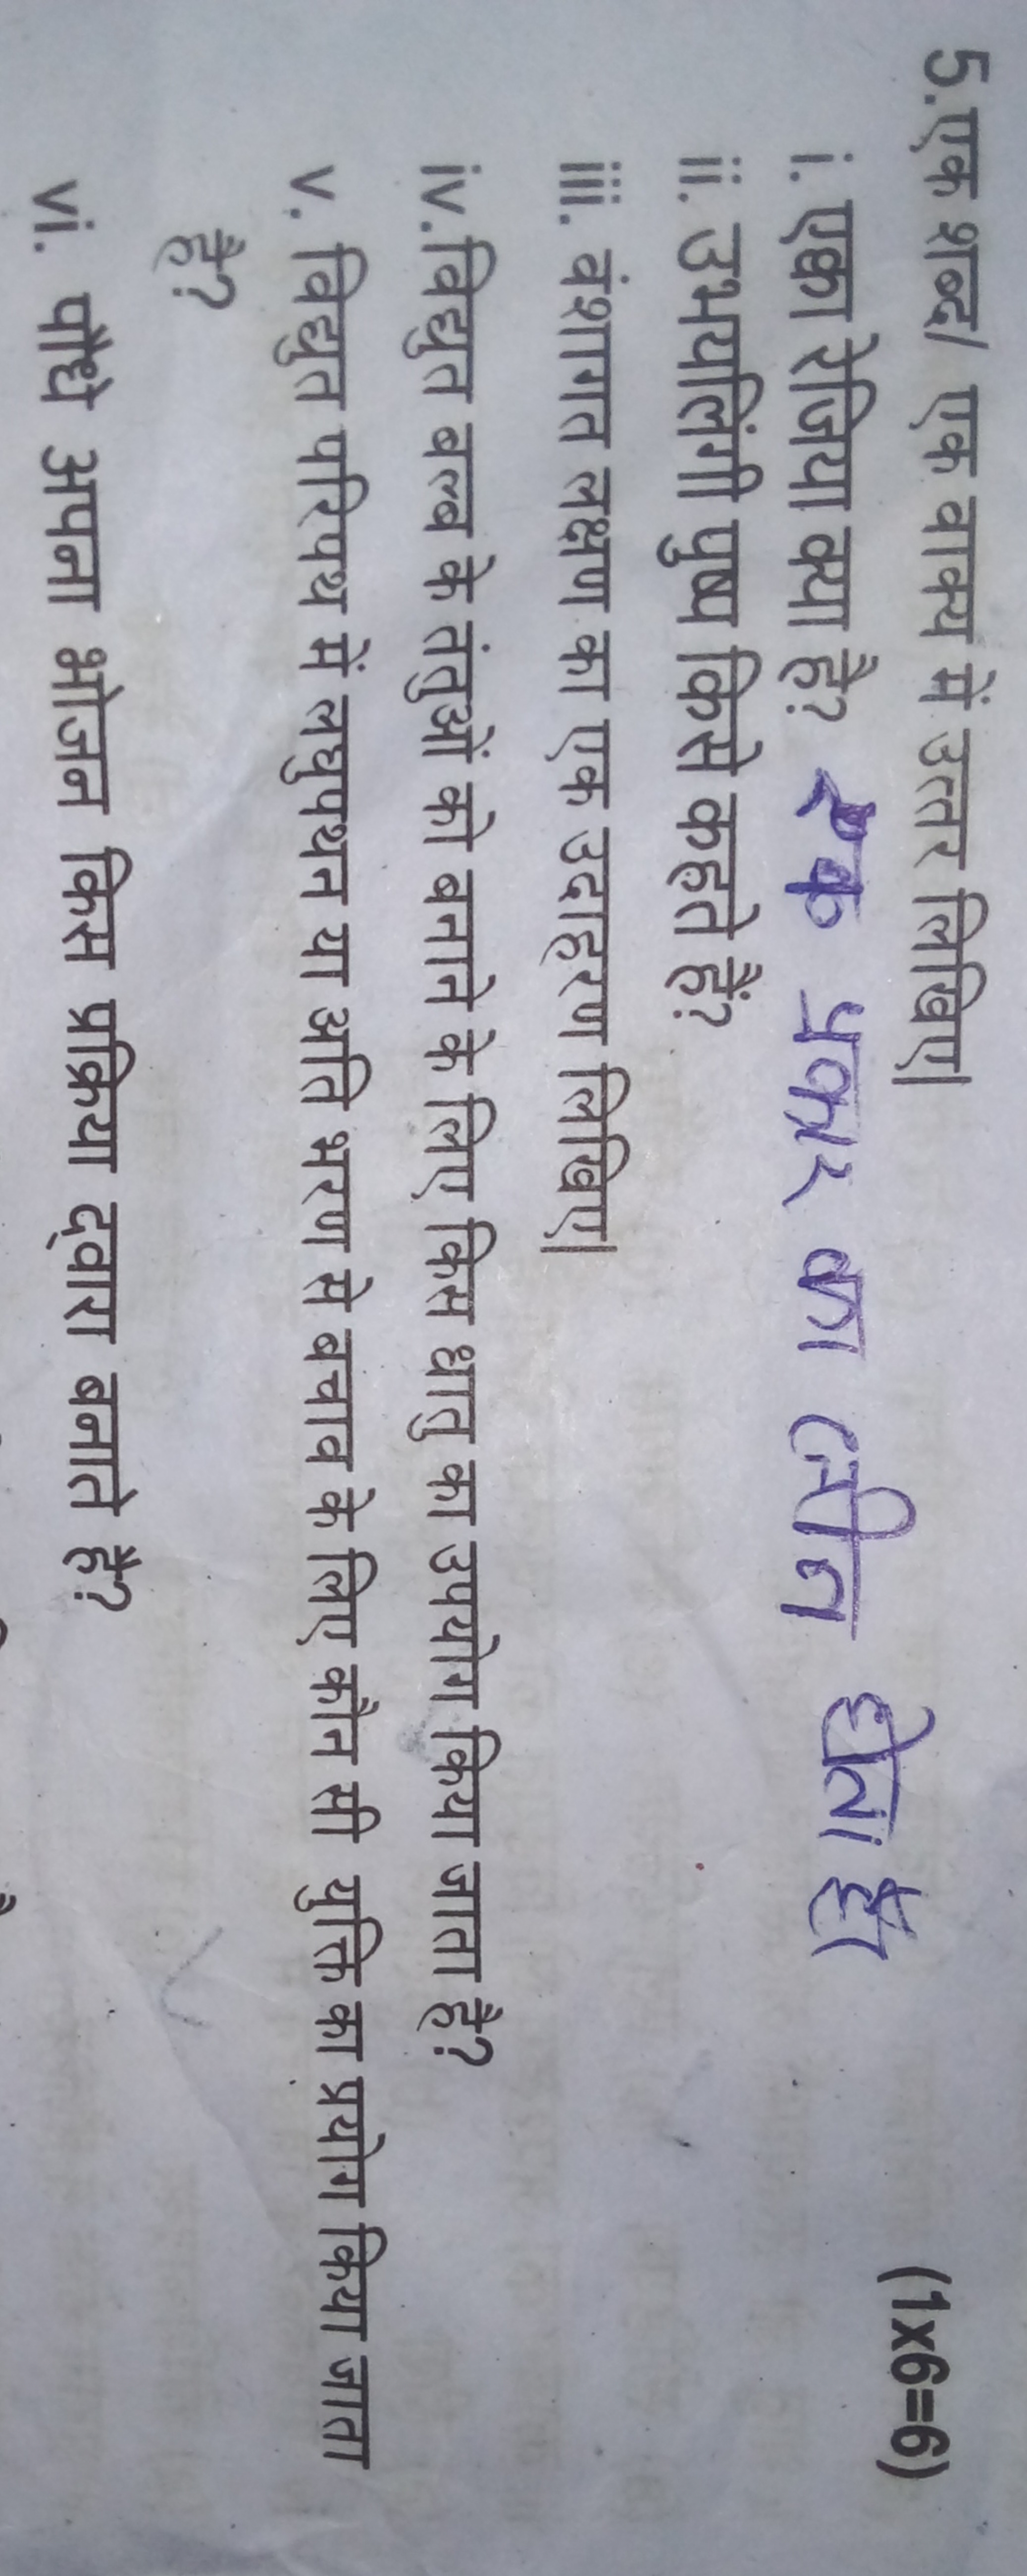 5.एक शब्द/ एक वाक्य में उत्तर लिखिए| (1x6=6)
i. एक्वा रेजिया क्या है? एक प्रकार का होता है
ii. उभयलिंगी पुष्प किसे कहते हैं?
iii. वंशागत लक्षण का एक उदाहरण लिखिए|
iv.विद्युत बल्ब के तंतुओं को बनाने के लिए किस धातु का उपयोग किया जाता है?
v. विद्युत परिपथ में लघुपथन या अति भरण से बचाव के लिए कौन सी युक्ति का प्रयोग किया जाता
है?
vi. पौधे अपना भोजन किस प्रक्रिया द्वारा बनाते हैं?